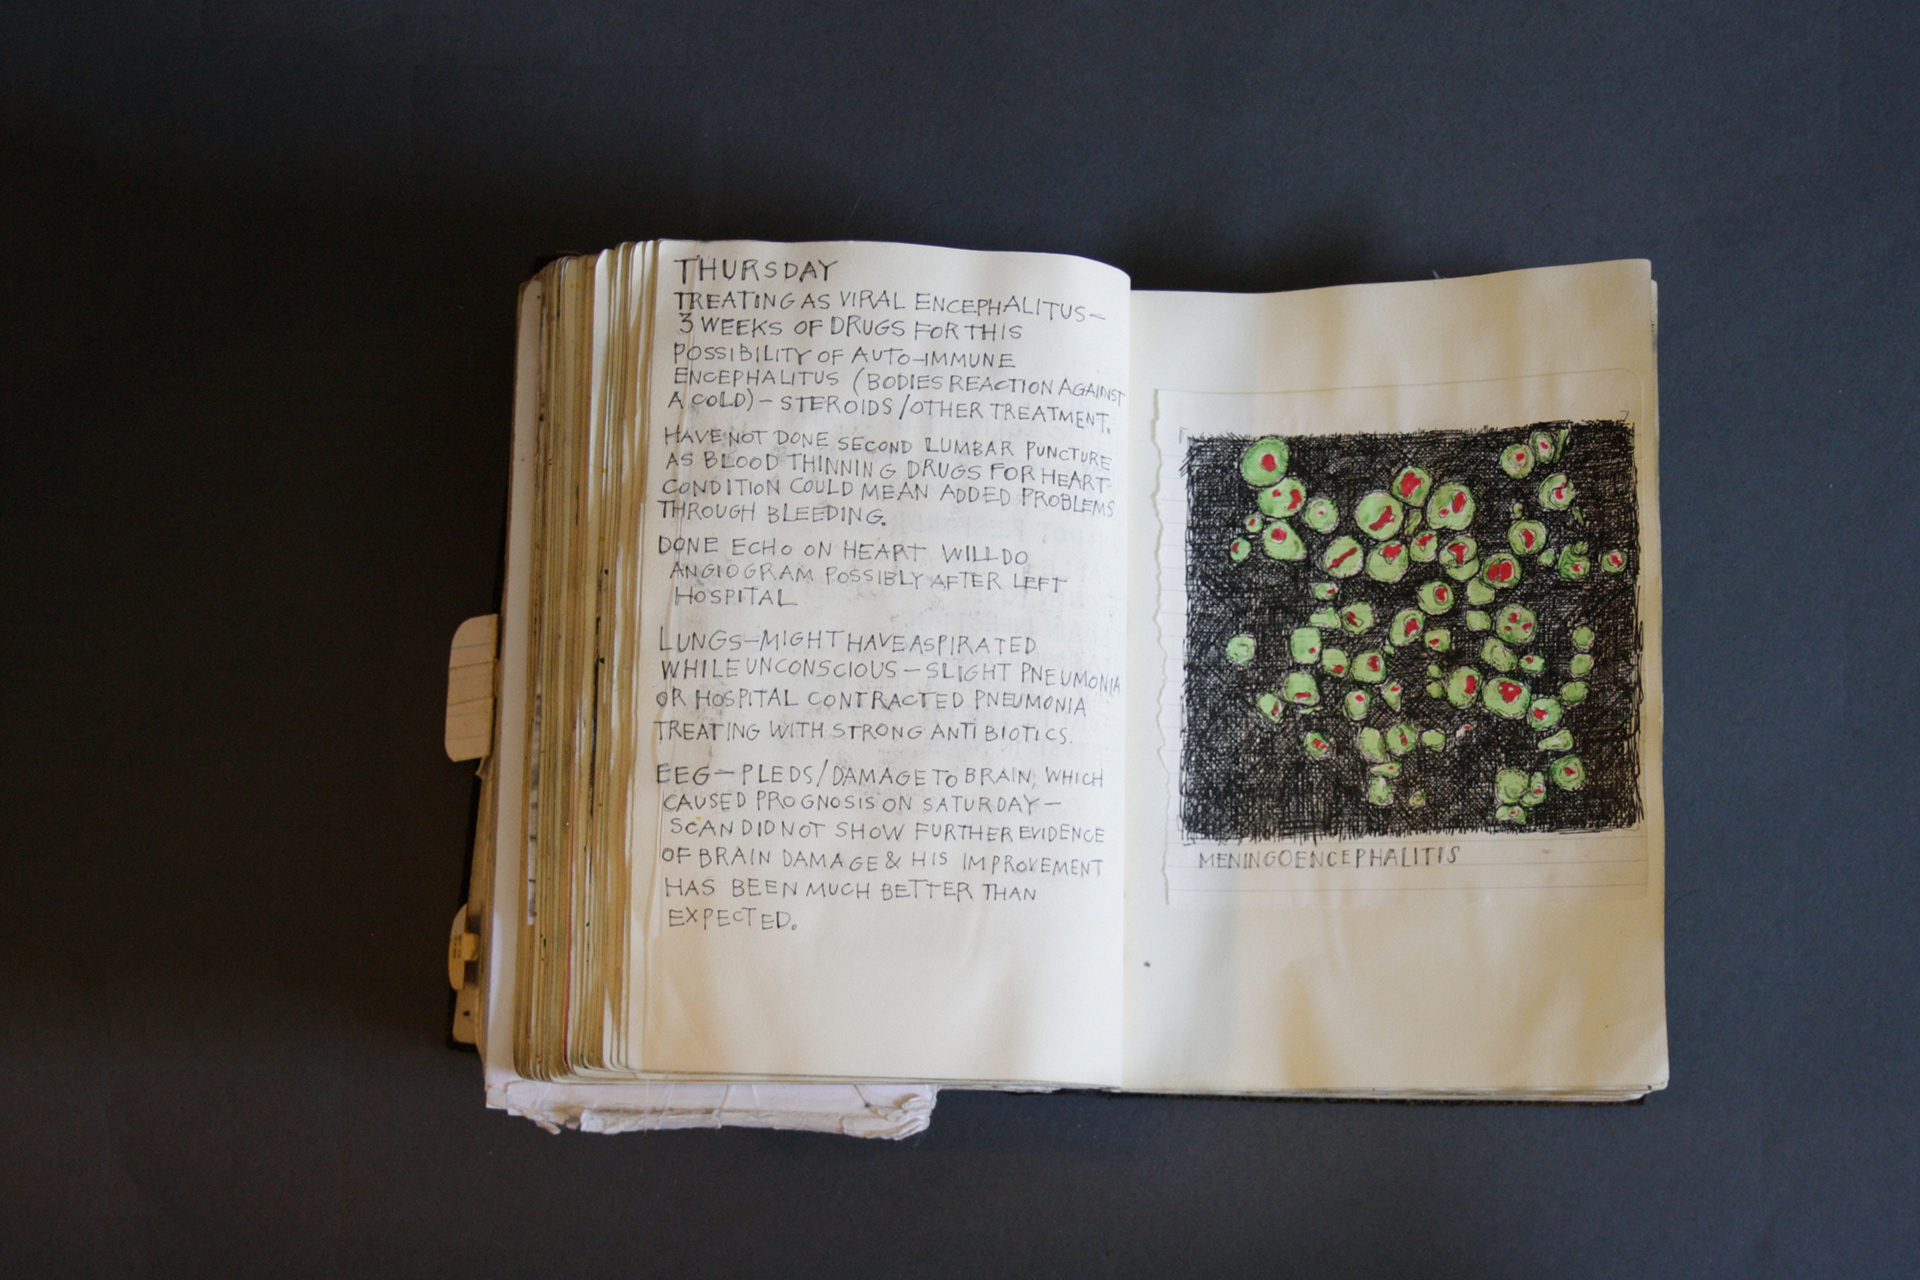 THURSDAY
TREATING AS VIRAL ENCEPHALITUS—
3 WEEKS OF DRUGS FOR THIS
POSSIBILITY OF AUTO-IMMUNE
ENCEPHALITUS (BODIES REACTION AGAINST
A COLD) — STEROIDS/OTHER TREATMENT.
HAVE NOT DONE SECOND LUMBAR PUNCTURE
AS BLOOD THINNING DRUGS FOR HEART
CONDITION COULD MEAN ADDED PROBLEMS
THROUGH BLEEDING.
DONE ECHO ON HEART WILL DO
ANGIOGRAM POSSIBLY AFTER LEFT
HOSPITAL
LUNGS—MIGHT HAVE ASPIRATED
WHILE UNCONSCIOUS — SLIGHT PNEUMONIA
OR HOSPITAL CONTRACTED PNEUMONIA
TREATING WITH STRONG ANTIBIOTICS.
EEG — PLEDS/DAMAGE TO BRAIN, WHICH
CAUSED PROGNOSIS ON SATURDAY —
SCAN DID NOT SHOW FURTHER EVIDENCE
OF BRAIN DAMAGE & HIS IMPROVEMENT
HAS BEEN MUCH BETTER THAN
EXPECTED.
MENINGOENCEPHALITIS